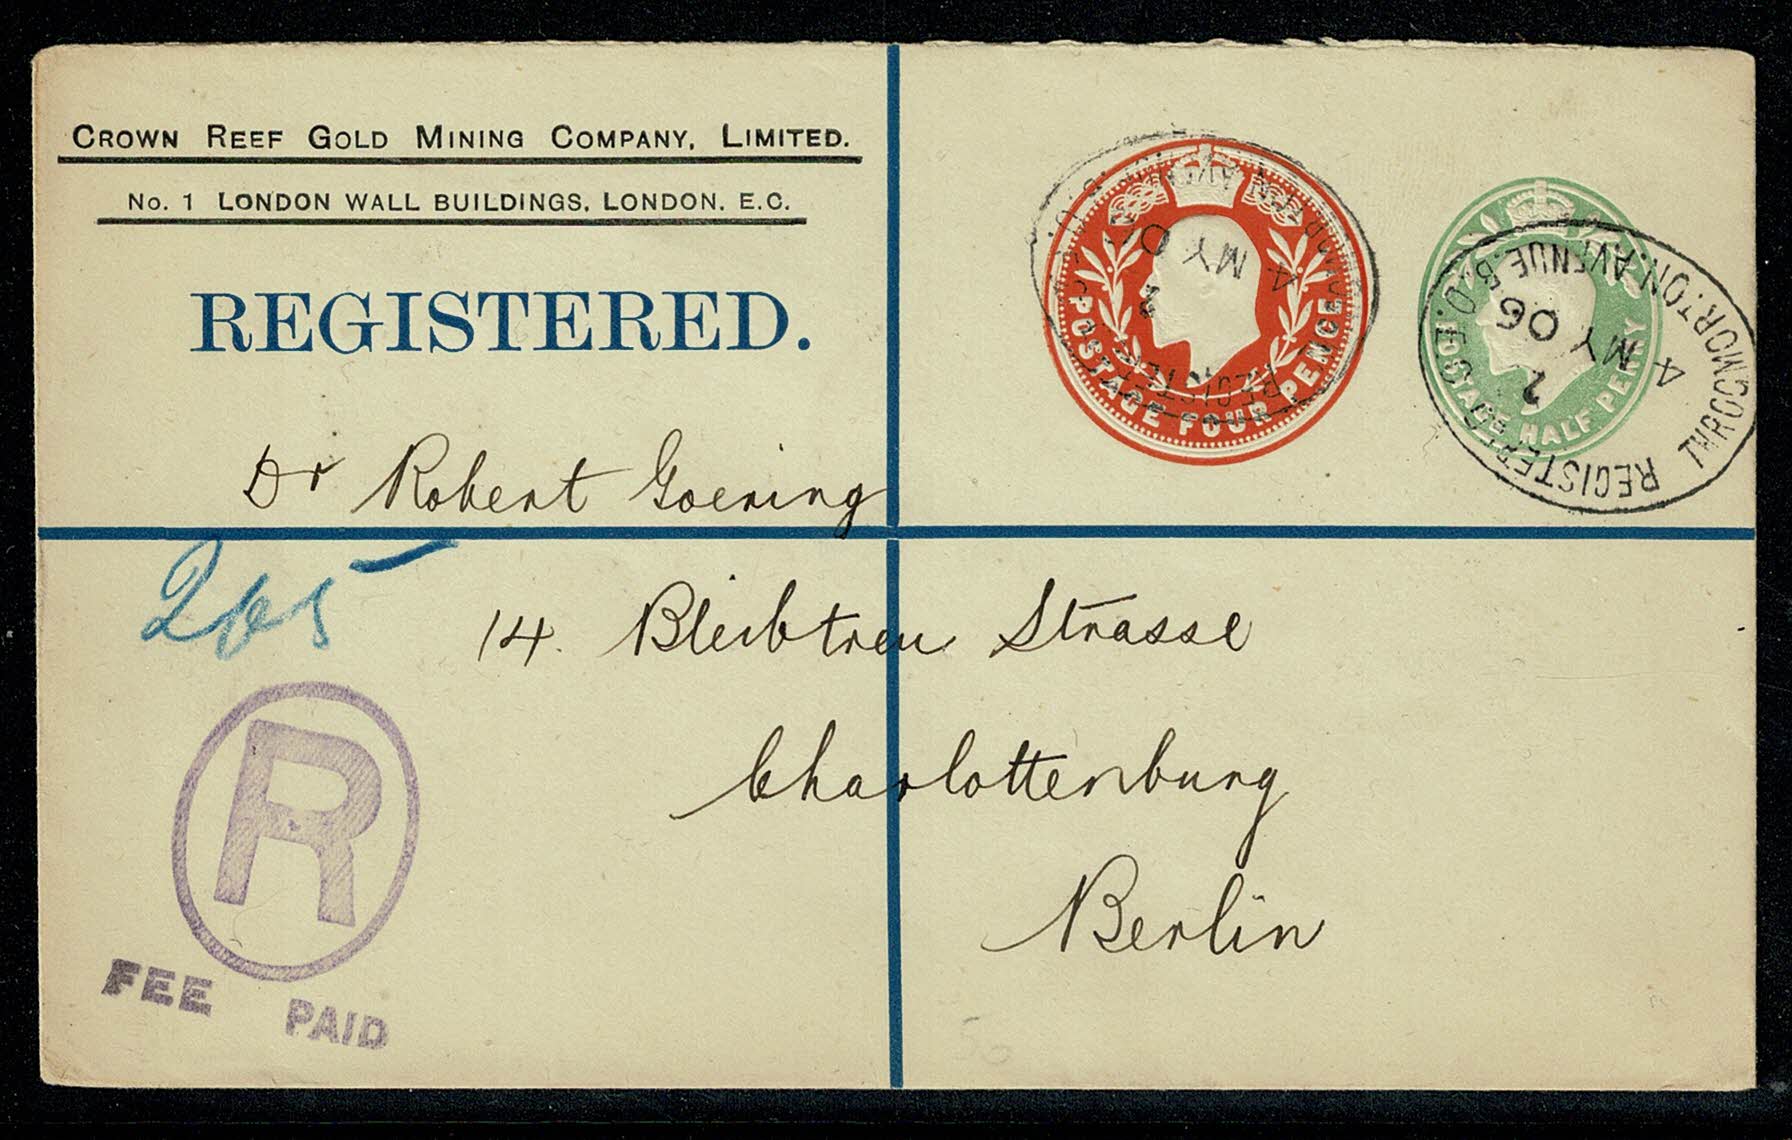 CROWN REEF GOLD MINING COMPANY, LIMITED.
No. 1 LONDON WALL BUILDINGS, LONDON. E.C.
REGISTERED.
POSTAGE FOUR PENCE
REGISTERED
4 MY 06
POSTAGE HALF PENNY
REGISTERED THROGMORTON.AVENUE.B.O.E.C.
4 MY 06
2
Dr Robert Goering
265
14. Bleibtreu Strasse
Charlottenburg
Berlin
R
FEE PAID